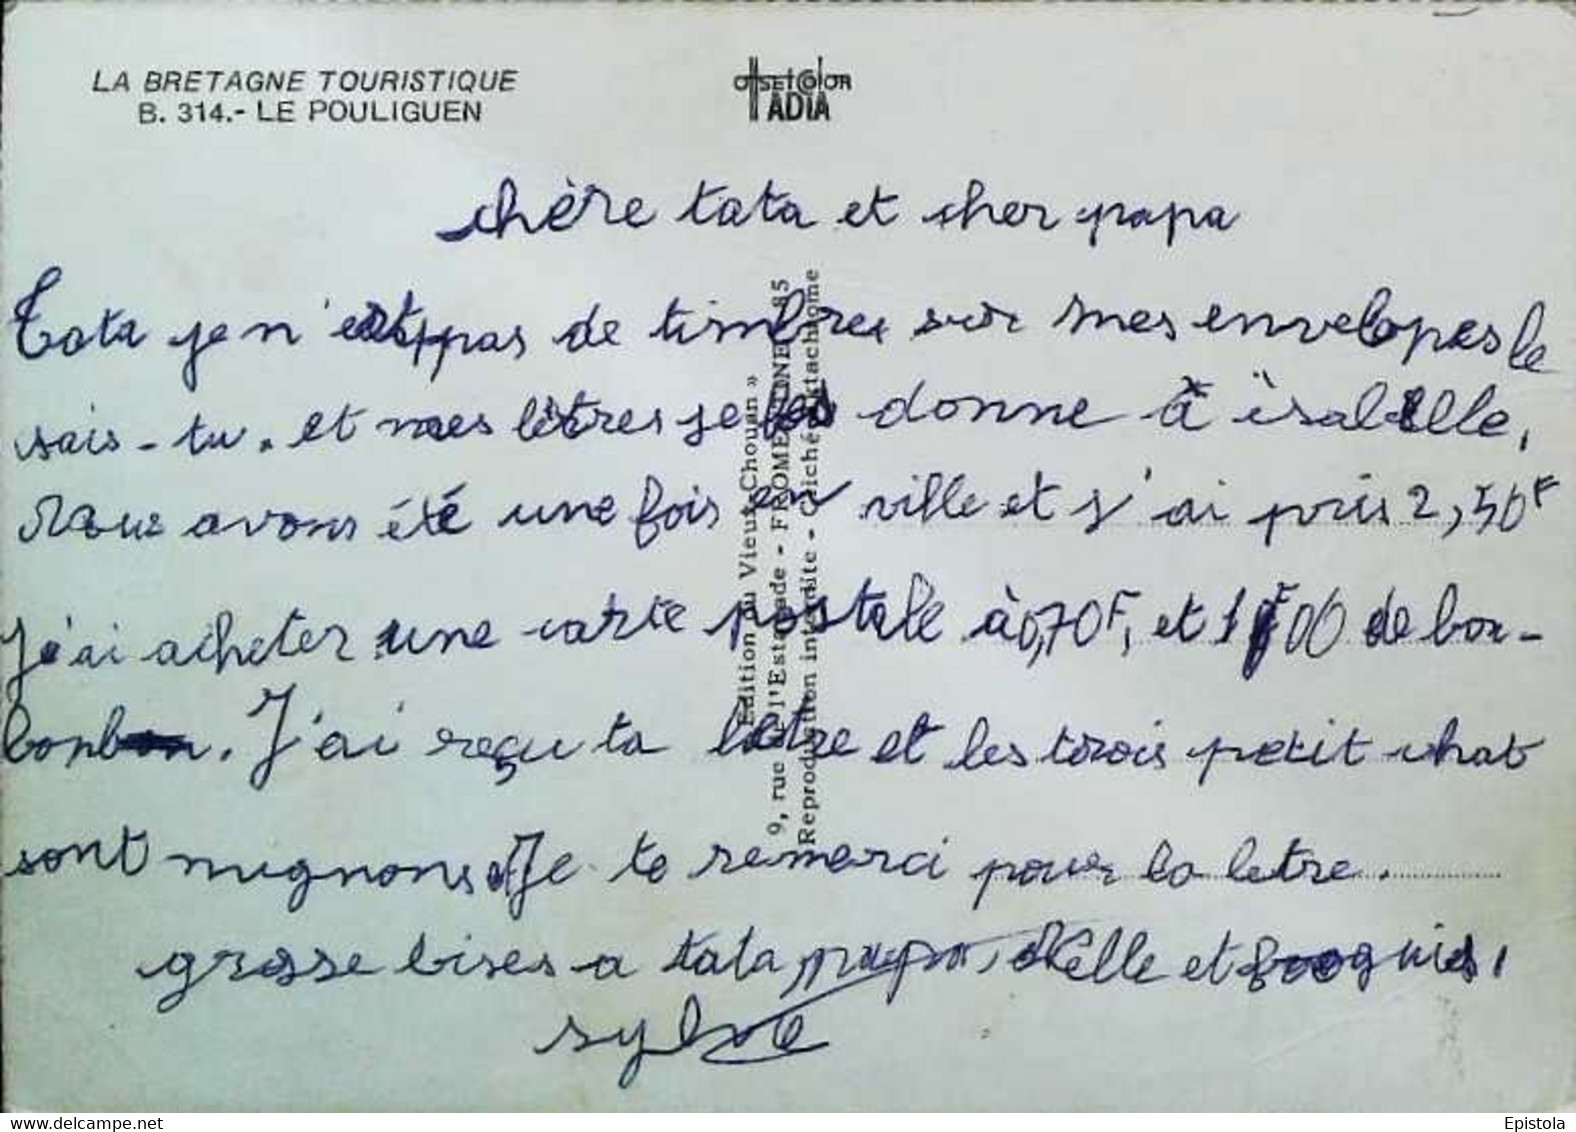 LA BRETAGNE TOURISTIQUE
B. 314.- LE POULIGUEN
OffSEt COlOR
IADIA
chère tata et cher papa
Tata je n'est pas de timbres sur mes envelopes le
sais-tu. et mes lètres je les donne à ïsabelle,
Nous avons été une fois en ville et j'ai pris 2,50F
j'ai acheter une carte postale à 0,70F, et 1F00 de bon-
bon. J'ai reçu ta lettre et les trois petit chat
sont mignons Je te remerci pour la letre.
grosse bises a tata papa, et
sylvie
Edition du Vieux Chouan »
9, rue de l'Estacade - FROMENTINE 85
Reproduction interdite - Cliché Ektachrome
www.delcampe.net
Epistola